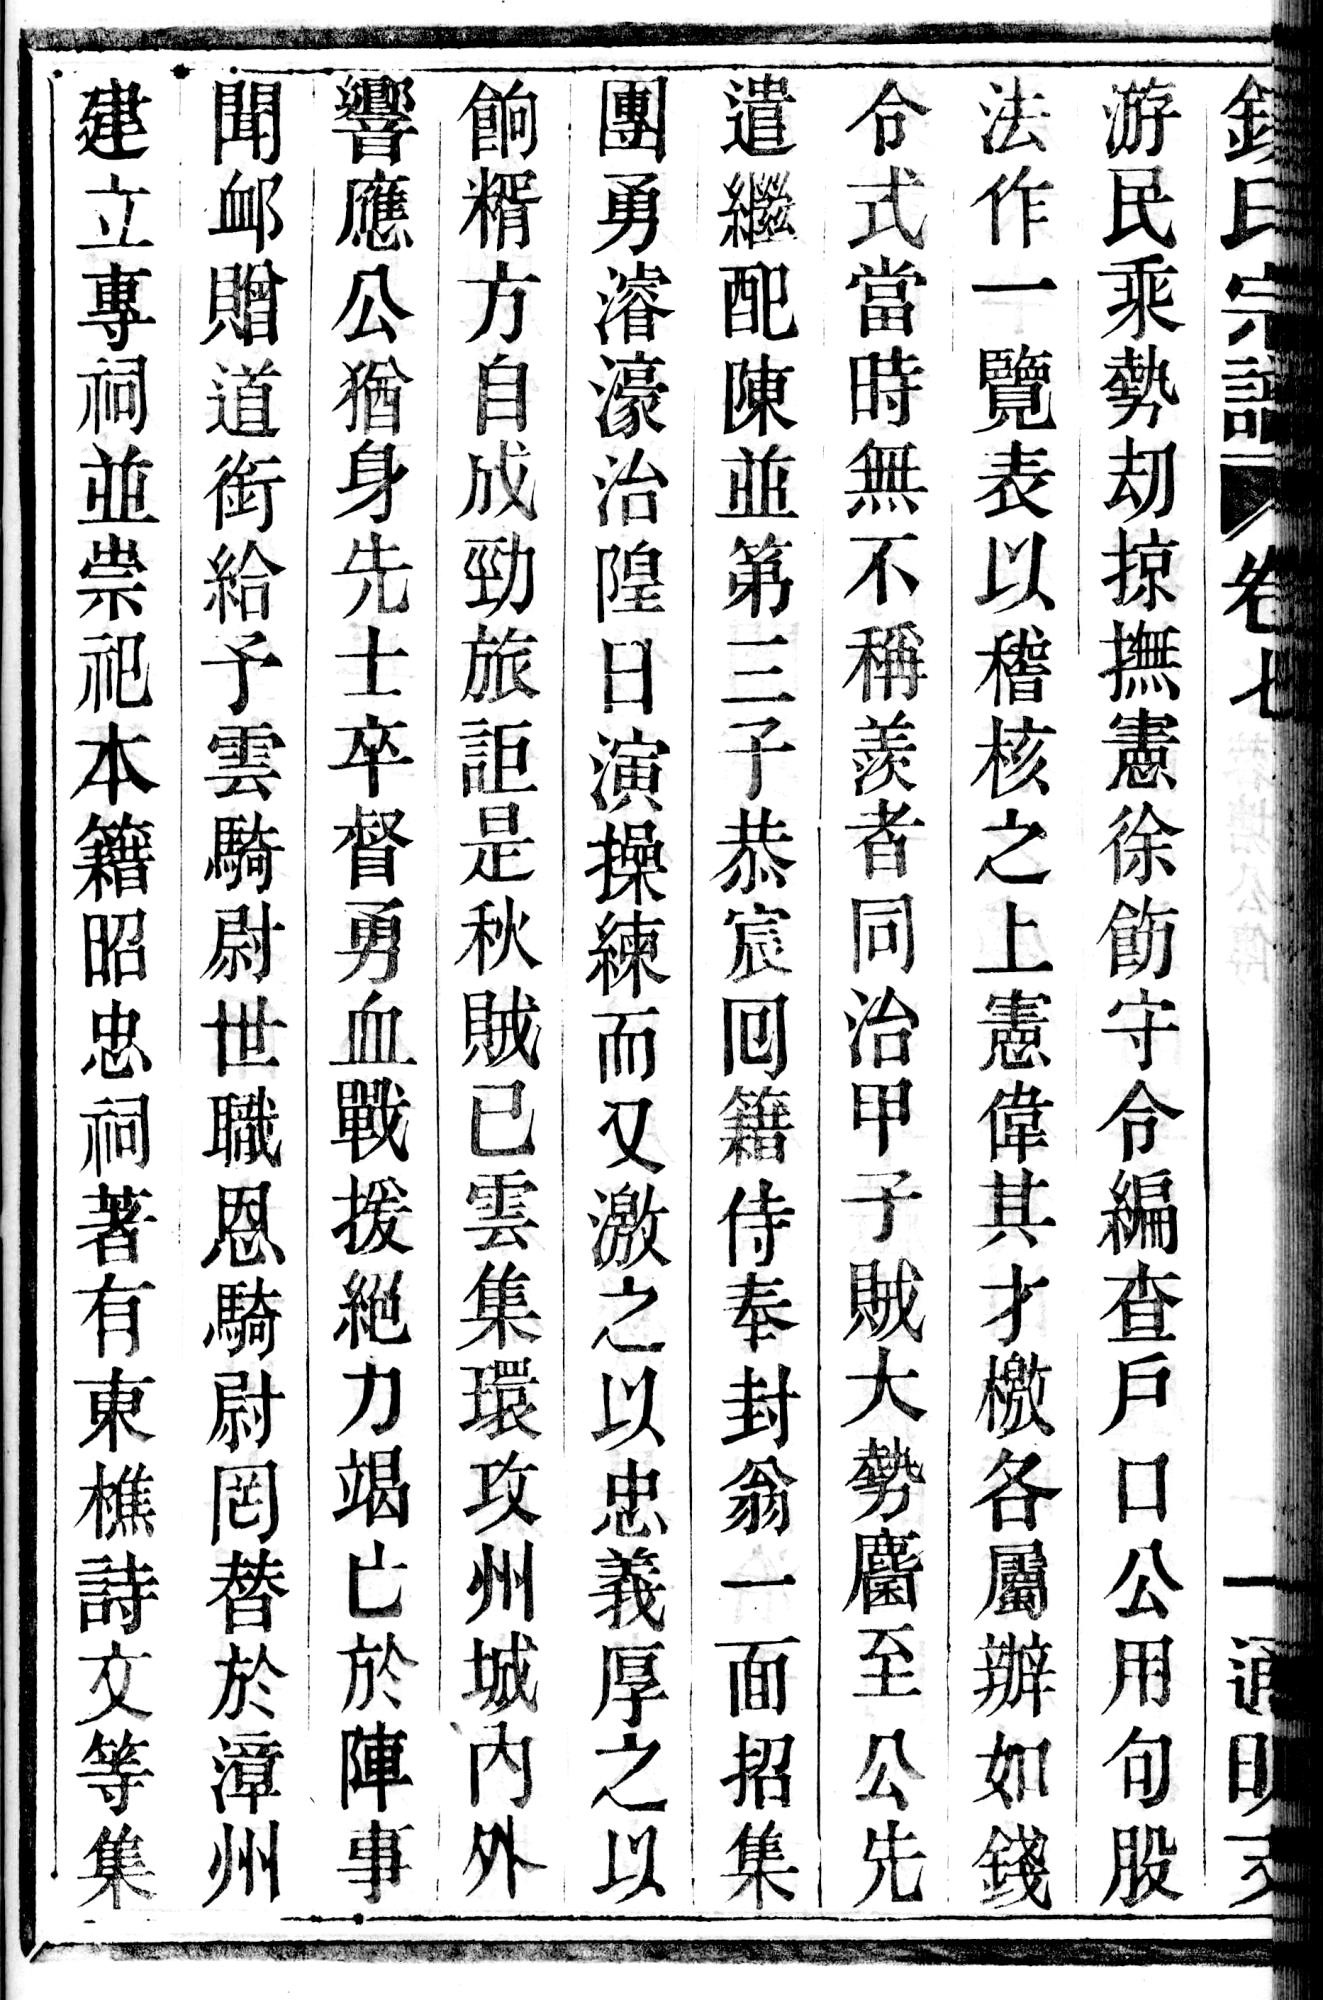 錢氏宗譜 卷七 一 通明支
游民乘勢刧掠撫憲徐飭守令編查戶口公用句股
法作一覽表以稽核之上憲偉其才檄各屬辦如錢
令式當時無不稱羨者同治甲子賊大勢麕至公先
遣繼配陳並第三子恭宸囘籍侍奉封翁一面招集
團勇濬濠治隍日演操練而又激之以忠義厚之以
餉糈方自成勁旅詎是秋賊已雲集環攻州城內外
響應公猶身先士卒督勇血戰援絕力竭亡於陣事
聞䘏贈道銜給予雲騎尉世職恩騎尉罔替於漳州
建立專祠並崇祀本籍昭忠祠著有東樵詩文等集